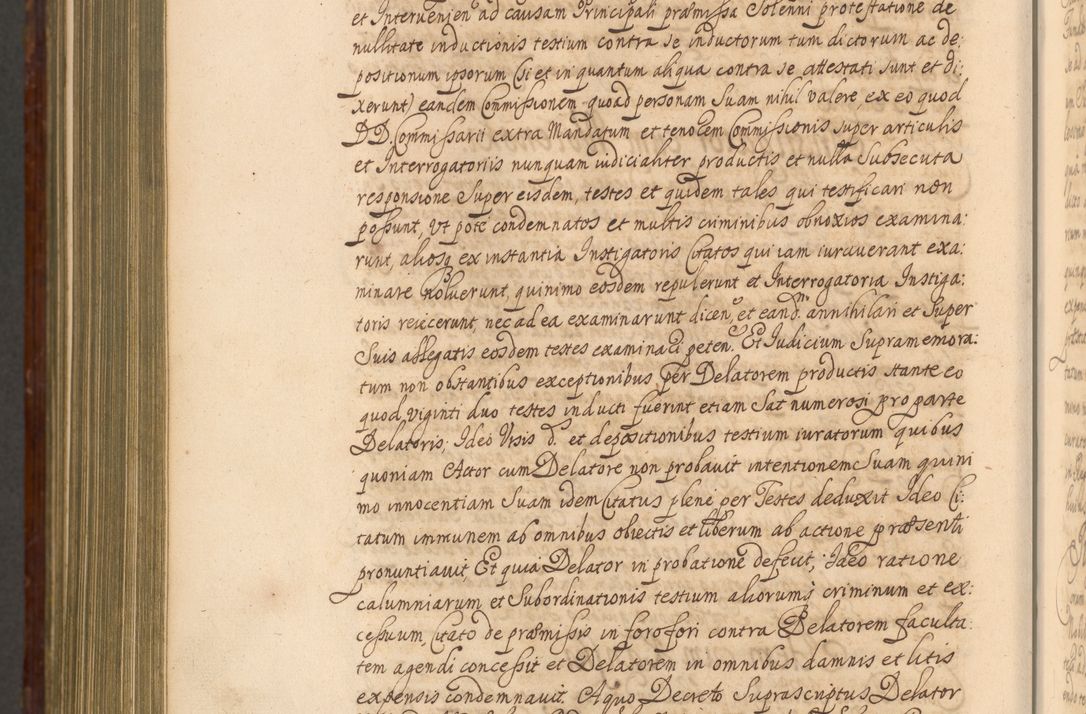 et Intervenien ad causam Principali præmissa Solenni protestatione de
nullitate inductionis testium contra se inductorum tum dictorum ac de:
positionum ipsorum (si et in quantum aliqua contra se attestati sunt et di:
xerunt) eandem Commissionem quoad personam Suam nihil valere ex eo quod
DD. Commissarii extra Mandatum et tenorem Commissionis super articulis
et Interrogatoriis nunquam iudicialiter productis et nulla Subsecuta
responsione Super eisdem, testes et quidem tales qui testificari non
possunt, Vt pote condemnatos et multis criminibus obnoxios examina:
runt, aliosq ex instantia Instigatoris Citatos qui iam iuraverant exa:
minare Noluerunt, quinimo eosdem repulerunt et Interrogatoria Instiga:
toris reiecerunt, nec ad ea examinarunt dicen, et eand. annihilari et Super
Suis allegatis eosdem testes examinaci peten. Et Iudicium Supramemora:
tum non obstantibus exceptionibus per Delatorem productis stante eo
quod, viginti duo testes inducti fuerint etiam Sat numerosi pro parte
Delatoris; Ideo Visis d. et depositionibus testium iuratorum quibus
quoniam Actor cum Delatore non probavit intentionem Suam quini
mo innocentiam Suam idem Citatus plene per Testes deduxit Ideo Ci:
tatum immunem ab omnibus obiectis et liberum ab actione præsenti
pronuntiavit, Et quia Delator in probatione defecit; Ideo ratione
calumniarum et Subordinationis testium aliorumq criminum et ex:
cessuum, Citato de præmissis in foro fori contra Delatorem faculta
tem agendi concessit et Delatorem in omnibus damnis et litis
expensis condemnavit. A quo Decreto Suprascriptus Delator